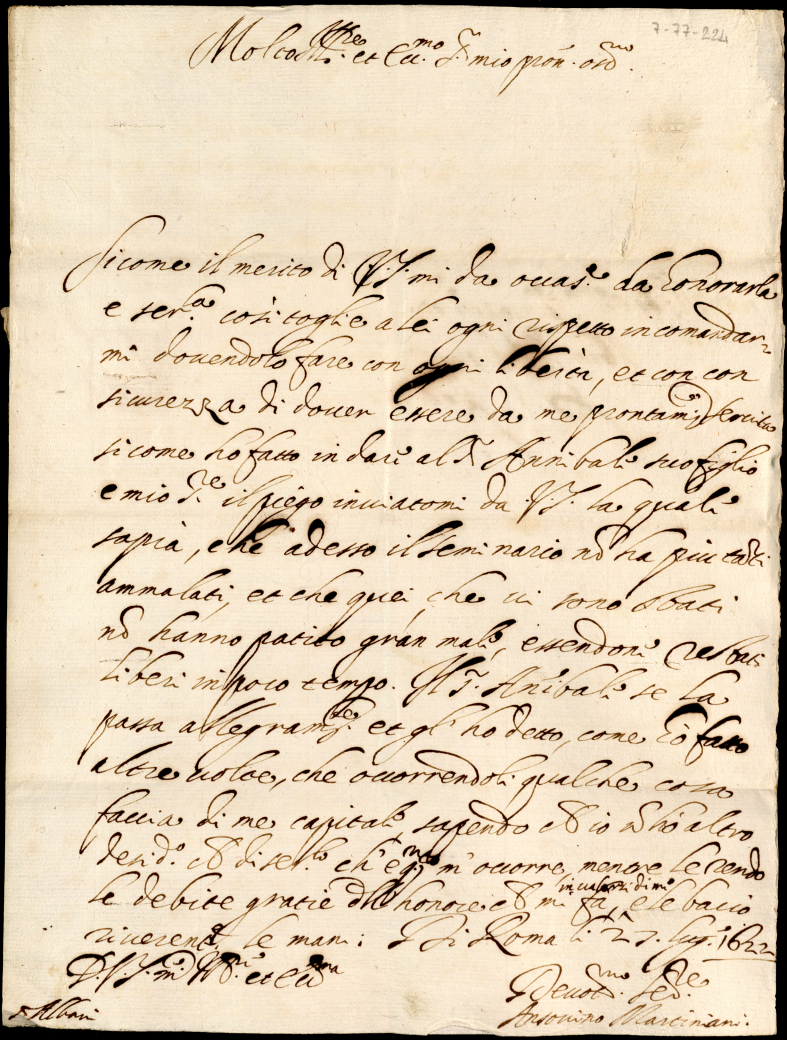 7-77-224
Molto Ill.re et Ecc.mo S.r mio pron. oss.mo
Sicome il merito di V.S. mi da occas.e da honorarla
e ser.la così toglie a lei ogni rispetto in comandar-
mi dovendolo fare con ogni libertà, et con con
sicurezza di dover essere da me prontam.te servita
sicome ho fatto in dare al S.r Annibale suo figlio
e mio S.re il piego inviatomi da V.S. la quale
saprà, che adesso il seminario nõ ha più tãti
ammalati, et che quei che vi sono stati
nõ hanno patito gran male, essendone restati
liberi in poco tempo. Il S.r Anibale se la
passa allegram.te et gl' ho detto, come hò fatto
altre volte, che occorrendoli qualche cosa
faccia di me capitale, sapendo ch' io nõ hò altro
desid.o ch di ser.lo ch' è q.to m' occorre, mentre le rendo
le debite gratie dell' honore ch mi fa in valersi di me, e le bacio
riverent.e le mani. Di Roma li 27. lug.o 1622
D. V. S. m.to Ill.re et Ecc.ma
Devot.mo Ser.re
S. Albani
Ansovino Marciniani.